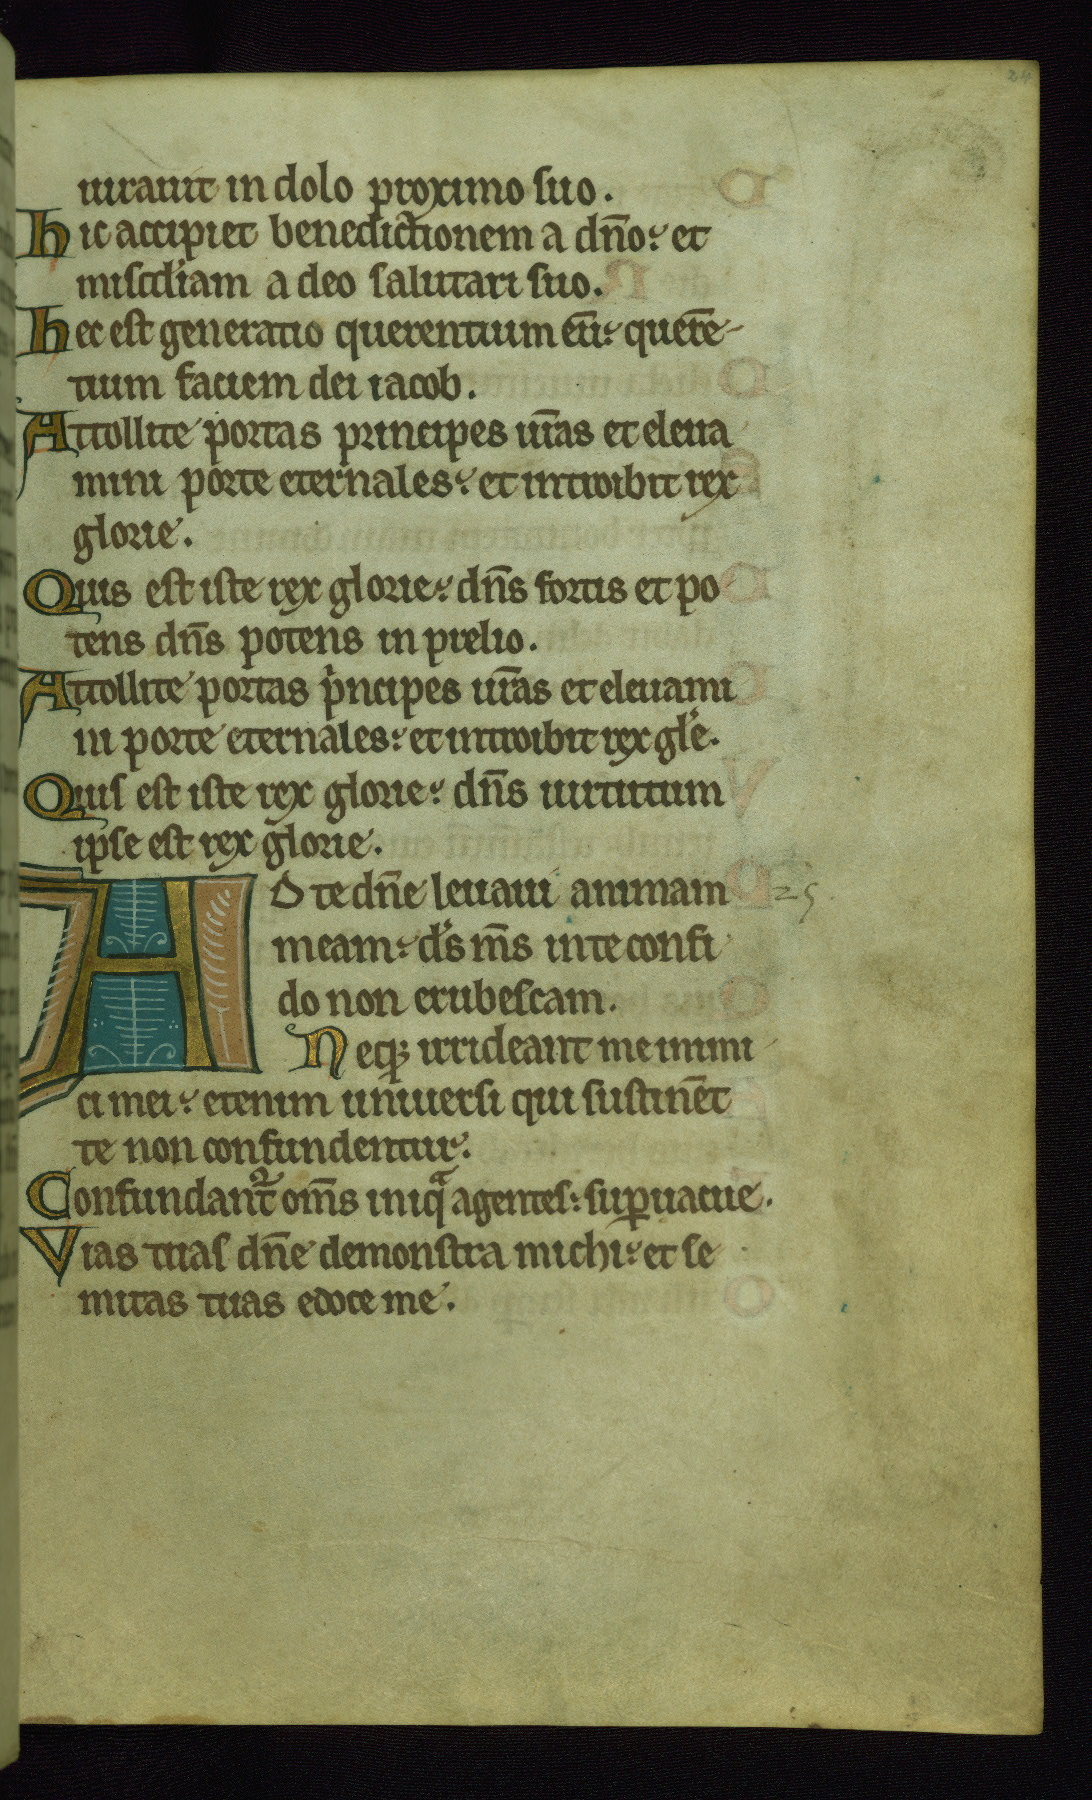 24
iurauit in dolo proximo suo.
Hic accipiet benedictionem a dn̄o: et
misc̄diam a deo salutari suo.
Hec est generatio querentium eū: querē-
tium faciem dei iacob.
Attollite portas principes ur̄as et eleua
mini porte eternales: et introibit rex
glorie.
Quis est iste rex glorie: dn̄s fortis et po
tens dn̄s potens in prelio.
Attollite portas pͥncipes ur̄as et eleuami
ni porte eternales: et introibit rex gl̄e.
Quis est iste rex glorie: dn̄s uirtutum
ipse est rex glorie.
AD te dn̄e leuaui animam 25
meam: ds̄ ms̄ in te confi
do non erubescam.
Neqꝫ irrideant me inimi
ci mei: etenim uniuersi qui sustinēt
te non confundentur.
Confundant᷑ om̄s iniqᵃ agentes: suꝑuacue.
Vias tuas dn̄e demonstra michi: et se
mitas tuas edoce me.